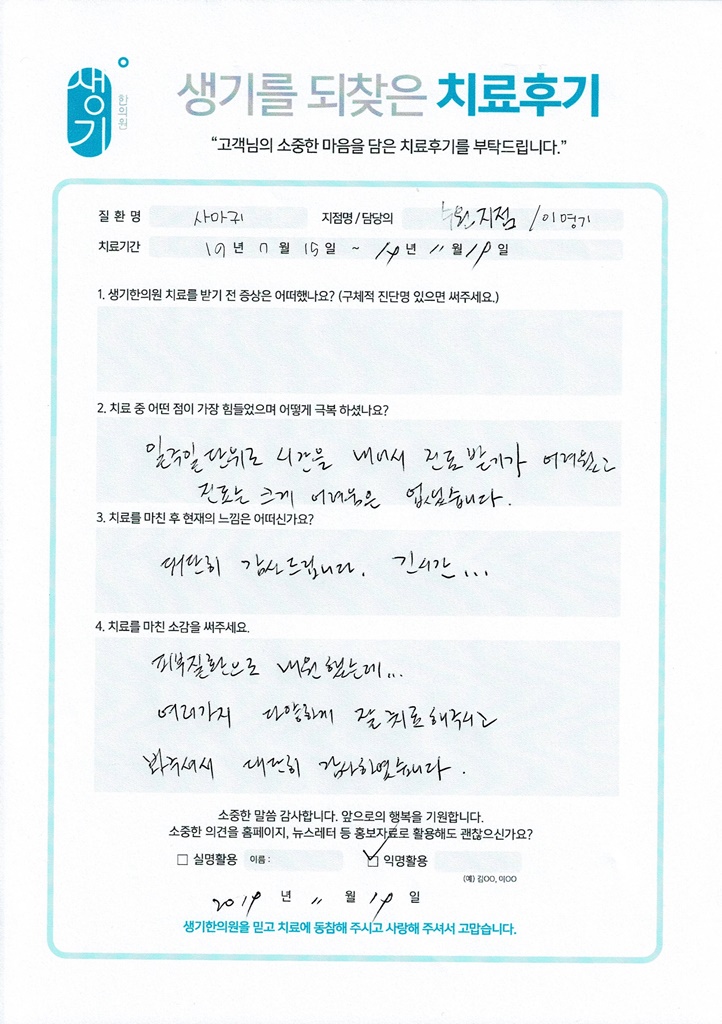 생기 한의원
생기를 되찾은 치료후기
“고객님의 소중한 마음을 담은 치료후기를 부탁드립니다.”
질 환 명 사마귀 지점명 / 담당의 수원지점 / 이명기
치료기간 19 년 7 월 15 일 ~ 19 년 11 월 19 일
1. 생기한의원 치료를 받기 전 증상은 어떠했나요? (구체적 진단명 있으면 써주세요.)
2. 치료 중 어떤 점이 가장 힘들었으며 어떻게 극복 하셨나요?
일주일 단위로 시간을 내어서 진료 받기가 어려웠고
진료는 크게 어려움은 없었습니다.
3. 치료를 마친 후 현재의 느낌은 어떠신가요?
대단히 감사드립니다. 긴시간...
4. 치료를 마친 소감을 써주세요.
피부질환으로 내원했는데...
여러가지 다양하게 잘 치료해주시고
봐주셔서 대단히 감사하였습니다.
소중한 말씀 감사합니다. 앞으로의 행복을 기원합니다.
소중한 의견을 홈페이지, 뉴스레터 등 홍보자료로 활용해도 괜찮으신가요?
□ 실명활용 이름 : ☑ 익명활용
(예) 김OO, 이OO
2019 년 11 월 19 일
생기한의원을 믿고 치료에 동참해 주시고 사랑해 주셔서 고맙습니다.